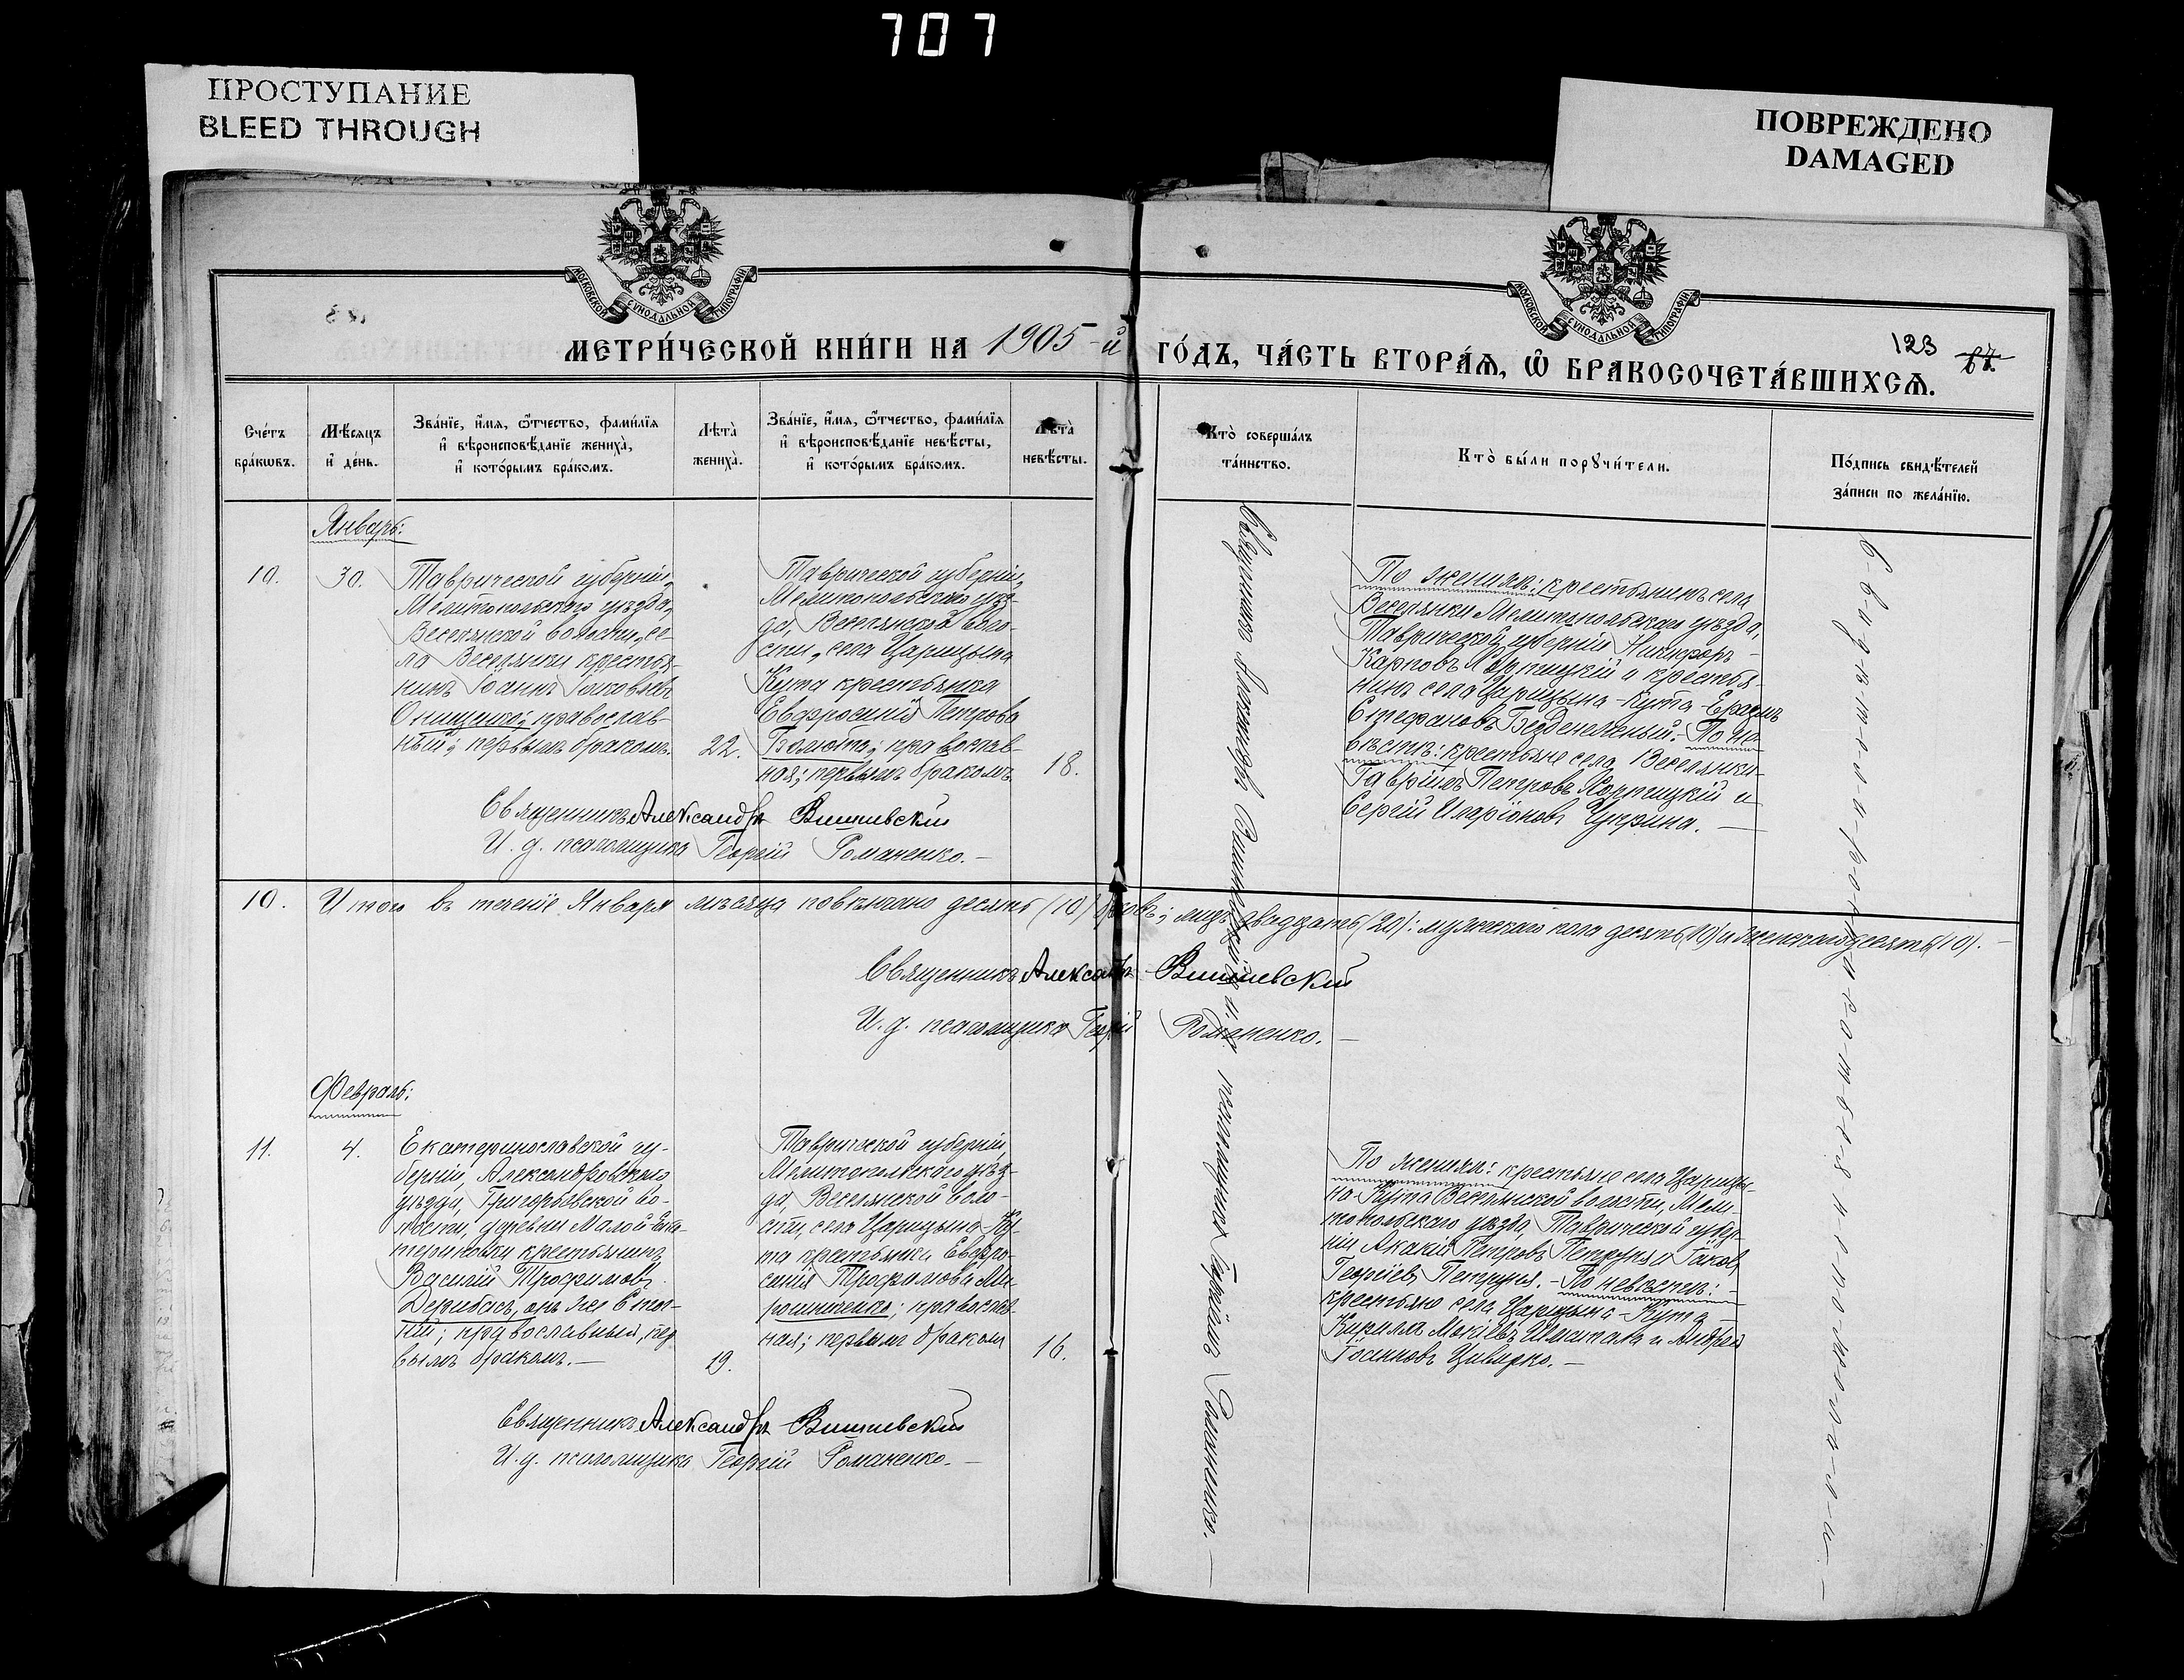 707
ПРОСТУПАНИЕ
BLEED THROUGH
ПОВРЕЖДЕНО
DAMAGED
МОСКОВСКОЙ СѴНОДАЛЬНОЙ ТИПОГРАФІИ
МОСКОВСКОЙ СѴНОДАЛЬНОЙ ТИПОГРАФІИ
МЕТРИ́ЧЕСКОЙ КНИ́ГИ НА 1905-й ГО́ДЪ, ЧА́СТЬ ВТОРА́Ѧ, Ѽ БРАКОСОЧЕТА́ВШИХСѦ.
123 67.
Сче́тъ
бра́кωвъ.
Мѣ́сѧцъ
и҆ де́нь.
Зва́нїе, и҆́мѧ, ѻ҆́тчество, фами́лїѧ
и҆ вѣроисповѣ́данїе жениха̀,
и҆ кото́рымъ бра́комъ.
Лѣта̀
жениха̀.
Зва́нїе, и҆́мѧ, ѻ҆́тчество, фами́лїѧ
и҆ вѣроисповѣ́данїе невѣ́сты,
и҆ кото́рымъ бра́комъ.
Лѣта̀
невѣ́сты.
Кто̀ соверша́лъ
та́инство.
Кто̀ бы́ли порꙋчи́тели.
По́дпись свидѣ́телей
за́писи по жела́нїю.
Январь:
10.
30.
Таврической губерніи,
Мелитопольскаго уѣзда,
Веселянской волости, се-
ла Веселянки крестья-
нинъ Іоаннъ Іаковлевъ
Онищенко; православ-
ный; первымъ бракомъ.
22.
Таврической губерніи,
Мелитопольскаго уѣз-
да, Веселянской воло-
сти, села Царицына
Кута крестьянка
Евфросинія Петрова
православ-
ная; первымъ бракомъ
18.
Священникъ Александръ Вишневскій
И. д. псаломщика Георгій Романенко.-
По женихѣ: крестьянинъ села
Веселянки Мелитопольскаго уѣзда,
Таврической губерніи Никифоръ
Карповъ и крестья-
нинъ села Царицына-Кута-
Стефановъ Безденежный.- По не-
вѣстѣ: крестьяне села Веселянки-
Гавріилъ Петровъ и
Сергій Иларіоновъ Цуркина. —
Священникъ Александръ Вишневскій и. д. псаломщика Георгій Романенко. —
Свидѣтелей
10. Итого въ теченіе Января мѣсяца повѣнчано десять (10) браковъ; лицъ двадцать (20): мужескаго пола десять (10) и женскаго десять (10). —
Священникъ Александръ Вишневскій
И. д. псаломщика Георгій Романенко. —
Февраль:
11.
4.
Екатеринославской гу-
берніи, Александровскаго
уѣзда, Григорьевской во-
лости, деревни Малой Ека-
териновки крестьянинъ
Василій Трофимовъ
Дерибасъ, онъ же
православный, пер-
вымъ бракомъ. —
19.
Таврической губерніи
Мелитопольскаго уѣз-
да, Веселянской воло-
сти, села Царицына-Ку-
та крестьянка Евфро-
синія Трофимова Ми-
рошниченко; православ-
ная; первымъ бракомъ
16.
Священникъ Александръ Вишневскій
И. д. псаломщика Георгій Романенко. —
По женихѣ: крестьяне села Царицы-
на-Кута Веселянской волости, Мели-
топольскаго уѣзда, Таврической губер-
ніи Акакій Петровъ Петруня и Іаковъ
Георгіевъ Петруня. - По невѣстѣ:
крестьяне села Царицына-Кута
Кирилъ и Андрей
Іоанновъ Цивирко. —